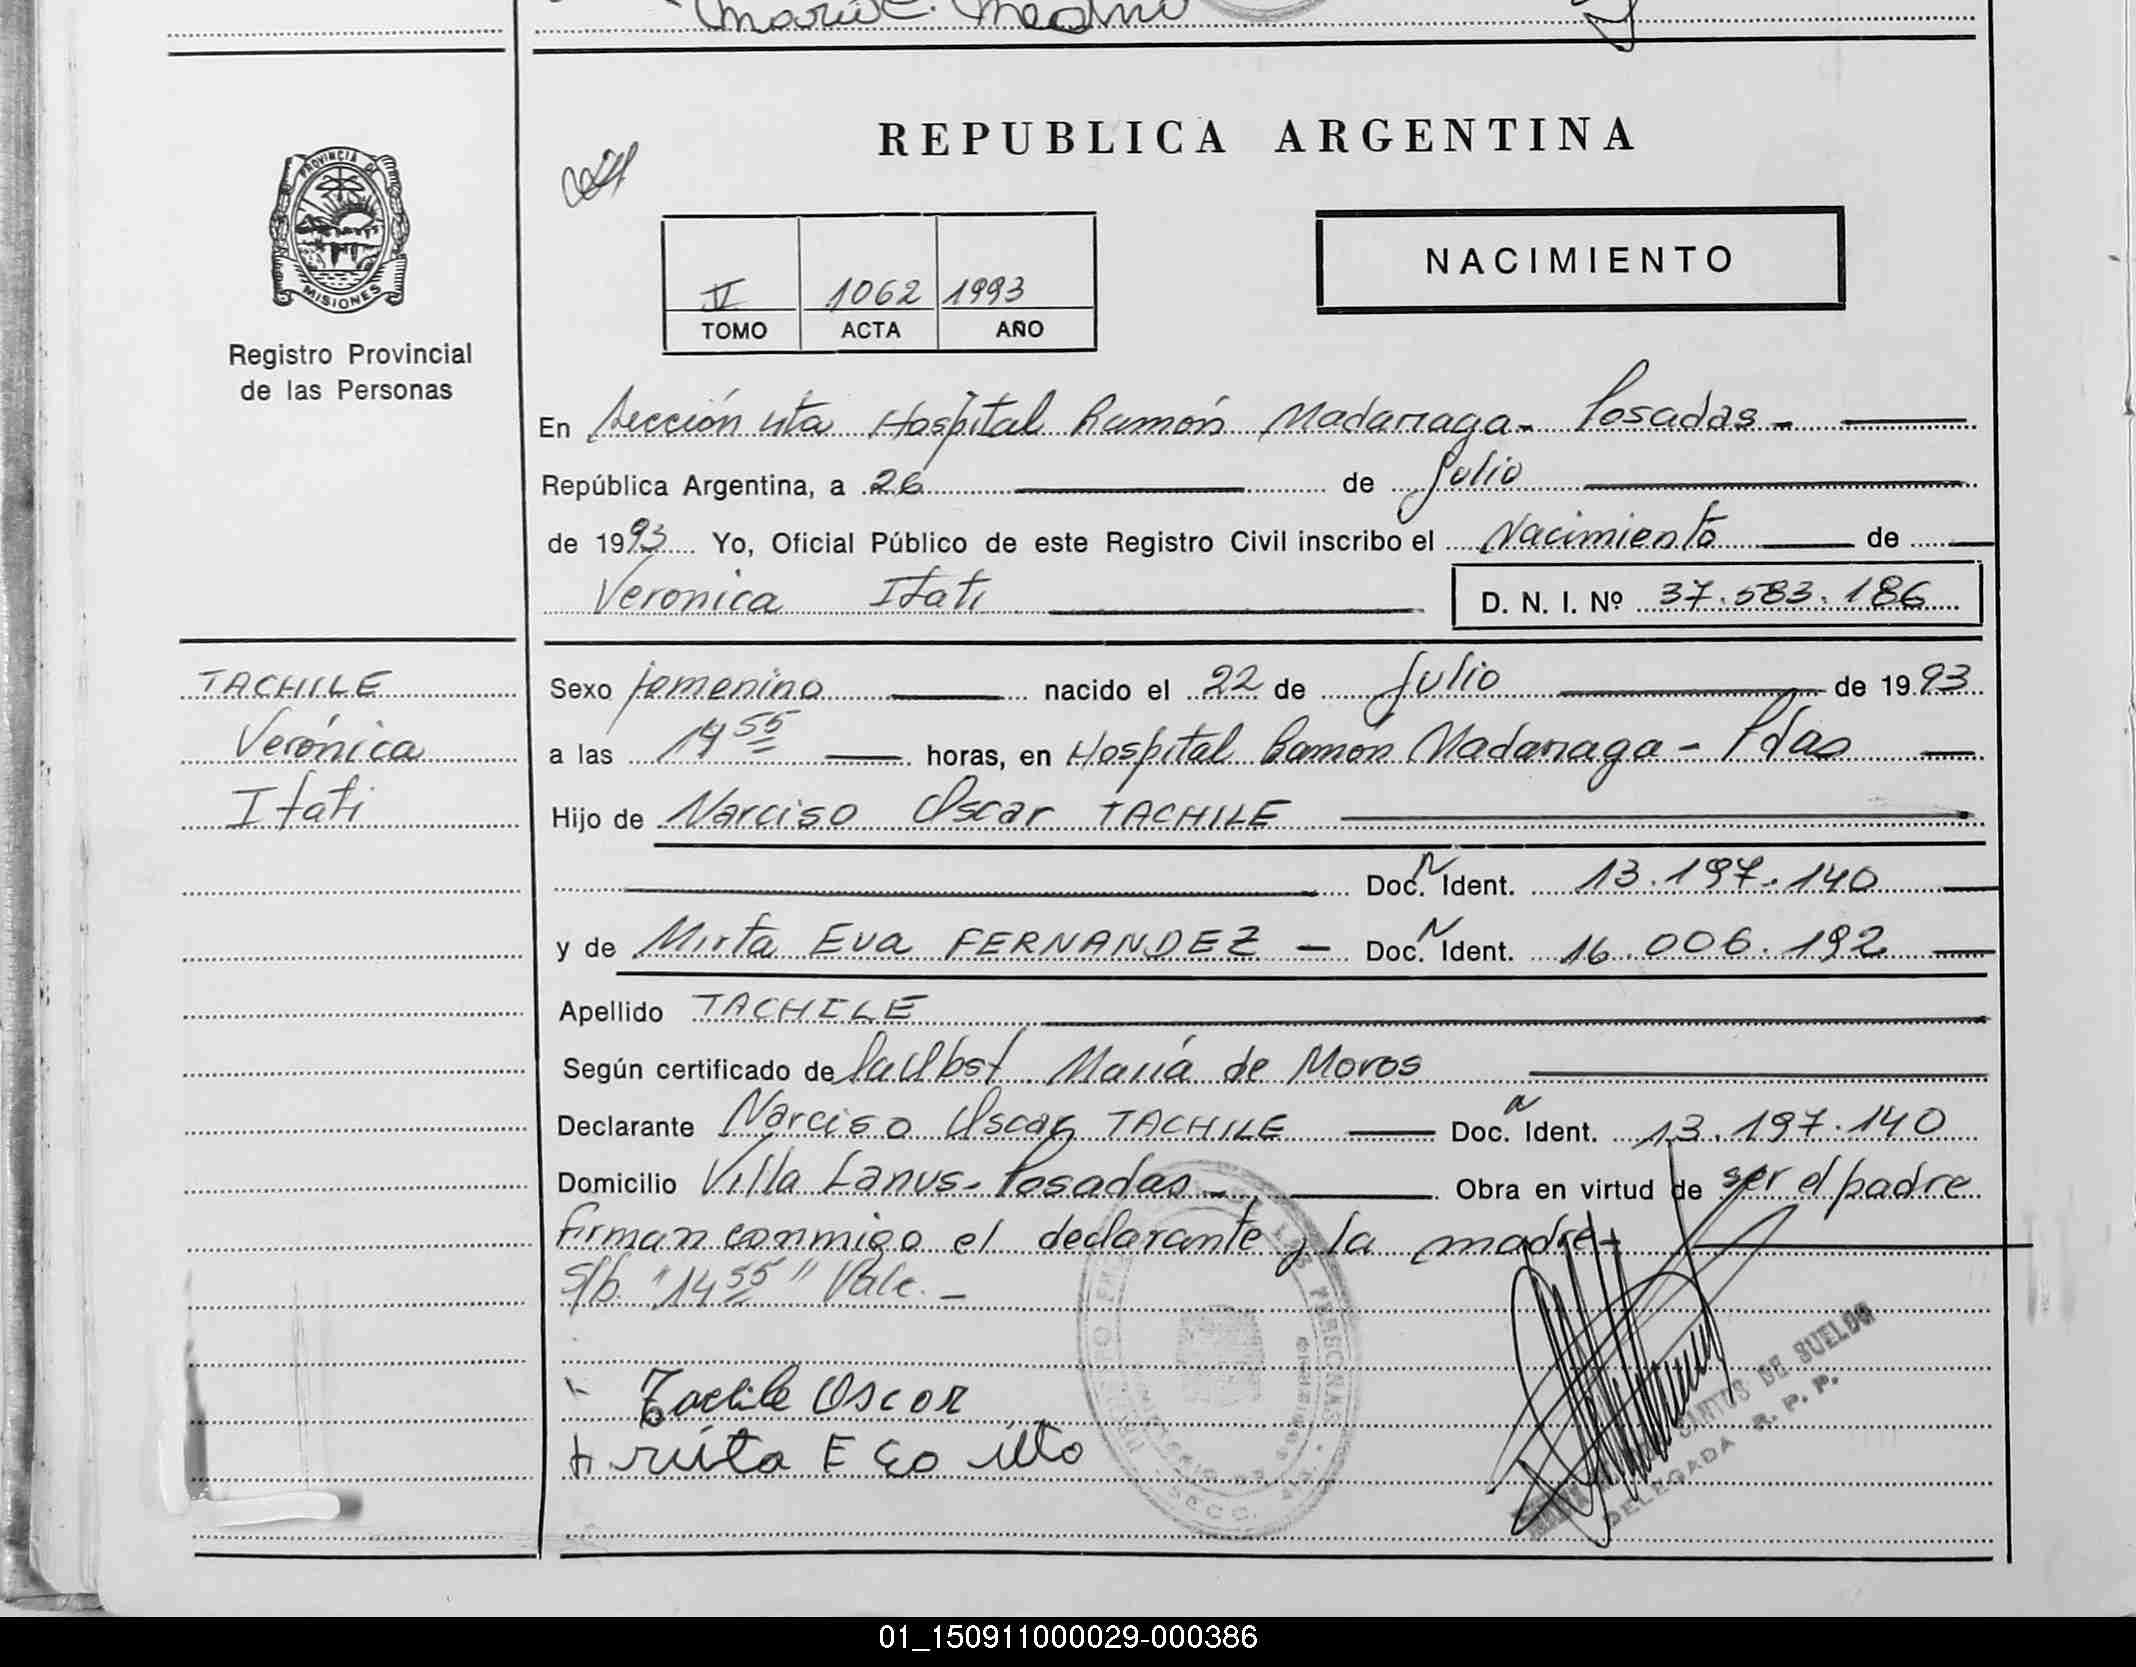 REPUBLICA ARGENTINA
PROVINCIA DE
MISIONES
Registro Provincial
de las Personas
NACIMIENTO
1062 1993
TOMO ACTA AÑO
En Sección 4ta Hospital Ramón Madariaga - Posadas -
República Argentina, a 26 de Julio
de 1993 Yo, Oficial Público de este Registro Civil inscribo el Nacimiento de
Veronica Itati D. N. I. Nº 37.583.186
TACHILE
Verónica
Itati
Sexo femenino nacido el 22 de Julio de 1993
a las 14 55 horas, en Hospital Ramón Madariaga - Pdas
Hijo de Narciso Oscar TACHILE
Doc. N Ident. 13.197.140
y de Mirta Eva FERNANDEZ - Doc. N Ident. 16.006.192
Apellido TACHILE
Según certificado de la Obst. María de Moros
Declarante Narciso Oscar TACHILE Doc. N Ident. 13.197.140
Domicilio Villa Lanus - Posadas - Obra en virtud de ser el padre
firman conmigo el declarante y la madre -
S/b. "14 55" Vale. -
Tachile Oscar
CANTOS DE SUELDO
DELEGADA R. P. P.
01_150911000029-000386